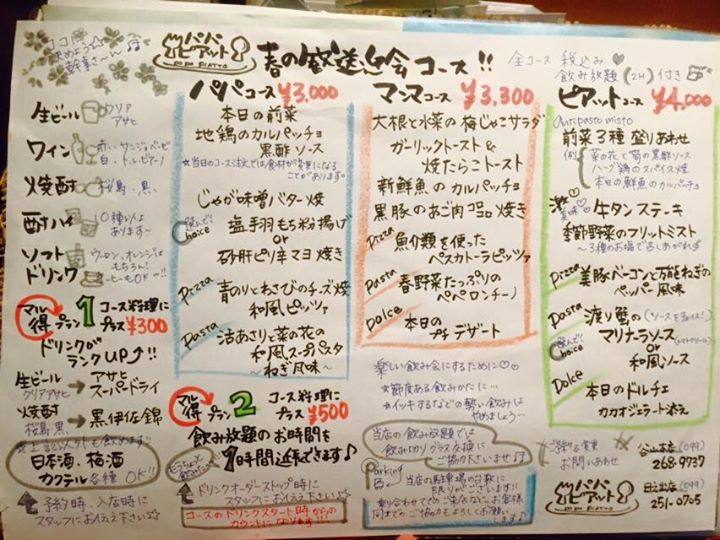 ココで
決めよう☆
幹事さ〜ん♪
パパ
ピアット
春の歓送迎会コース!!
全コース 税込み♡
飲み放題(2H)付き
生ビール クリアアサヒ
ワイン 赤、サンジョベーゼ
白、トレビアーノ
焼酎 桜島、黒、
酎ハイ
あります〜
ソフト
ドリンク
ウーロン、オレンジは
もちろん!
コーヒーもOK〜!!
マル得プラン1 コース料理に
プラス¥300
ドリンクが
ランクUP↑!!
生ビール
クリアアサヒ
→アサヒ
スーパードライ
焼酎
桜島 黒
→黒伊佐錦
☆上記以外も飲めます♡
日本酒、梅酒
カクテル各種OK!!
予約時、入店時に
スタッフにお伝え下さい☆
パパコース ¥3,000
本日の前菜
地鶏のカルパッチョ
黒酢ソース
☆当日のコース注文では食材が変更になる
ことがあります。
じゃが味噌バター焼
選んで!
Choice
塩手羽もち粉揚げ
or
砂肝ピリ辛マヨ焼き
Pizza
青のりとわさびのチーズ焼
和風ピッツァ
Pasta
活あさりと菜の花の
和風スープパスタ
〜ねぎ風味〜
マル得プラン2 コース料理に
プラス¥500
もうちょっと
飲みたい♡
飲み放題のお時間を
1時間延長できます♪
ドリンクオーダーストップ時に
スタッフにお伝え下さい☆
コースのドリンクスタート時からの
カウントになります!!!
マンマコース ¥3,300
大根と水菜の梅じゃこサラダ
ガーリックトースト&
焼たらこトースト
新鮮魚のカルパッチョ
黒豚のあご肉コロコロ焼き
Pizza
魚介類を使った
ペスカトーラピッツァ
Pasta
春野菜たっぷりの
ペペロンチーノ
Dolce
本日の
プチデザート
楽しい飲み会にするために♡♡
☆節度ある飲みかたに…
☆イッキするなどの勢い飲みは
やめましょう…
当店の飲み放題では
飲みきりグラス交換に
ご協力下さいませ♪
Parking
当店の駐車場の台数に
限りがございます!!
乗り合わせてのご来店など、お客様
同士でのご協力もよろしくお願い
します♪
ピアットコース ¥4,000
Antipasto misto
前菜3種盛りあわせ
例)
菜の花と筍の黒酢ソース
ハーブ鶏のスパイス焼
本日の鮮魚のカルパッチョ
激
美味♡
牛タンステーキ
季節野菜のフリットミスト
〜3種のお塩で召しあがれ〜
Pizza
美豚ベーコンと万能ねぎの
ペッパー風味
Pasta
渡り蟹の(ソースを選べる!)
選んで!
Choice
マリナーラソース
(トマトクリーム)
or
和風ソース
Dolce
本日のドルチェ
カカオジェラート添え
ご予約・変更
お問いあわせ
谷山本店(099)
268-9737
パパ
ピアット
日之出店(099)
251-0705